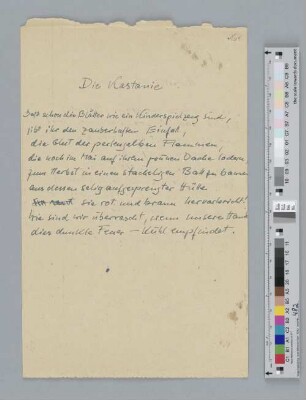 Die Kastanie
Daß schon die Blätter wie ein Kinderspielzeug sind,
gibt ihr den zauberhaften Einfall,
die Glut der perlengelben Flammen,
die noch im Mai auf ihren grünen lodern
zum Herbst in einen stacheligen Ball zu bannen
aus dessen aufgesprengter Hülse
sie rot und braun hervorbricht.
Wie sind wir überrascht, wenn unsere Hand
dies dunkle Feuer – kühl empfindet.